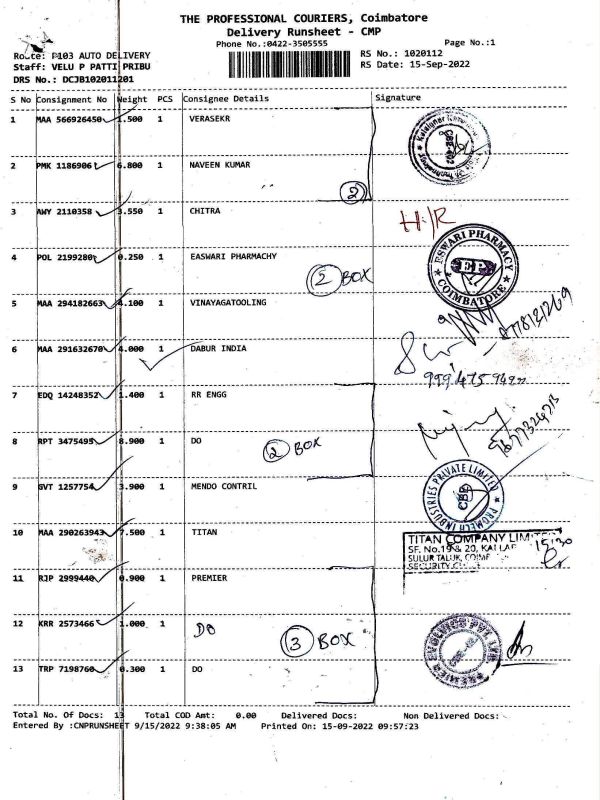 THE PROFESSIONAL COURIERS, Coimbatore
Delivery Runsheet - CMP
Phone No.:0422-3505555
Page No.:1
Route: P103 AUTO DELIVERY
RS No.: 1020112
Staff: VELU P PATTI PRIBU
RS Date: 15-Sep-2022
DRS No.: DCJB102011201
S No Consignment No Weight PCS Consignee Details Signature
1 MAA 566926450 1.500 1 VERASEKR
2 PMK 1186906 6.800 1 NAVEEN KUMAR
2
3 AWY 2110358 3.550 1 CHITRA H:/R
4 POL 2199280 0.250 1 EASWARI PHARMACHY
2 BOX
ESWARI PHARMACY
EP
COIMBATORE
5 MAA 294182663 4.100 1 VINAYAGATOOLING
6 MAA 291632670 4.000 1 DABUR INDIA
7 EDQ 14248352 1.400 1 RR ENGG
8 RPT 3475495 8.900 1 DO
2 BOX
9 GVT 1257754 3.900 1 MENDO CONTRIL
PROMECH INDUSTRIES PRIVATE LIMITED
10 MAA 290263943 7.500 1 TITAN
TITAN COMPANY LIMITED
SF. No.19 & 20,
SULUR TALUK,
SECURITY
11 RJP 2999440 0.900 1 PREMIER
12 KRR 2573466 1.000 1 DO
3 BOX
PREMIER EVOLVICS PVT LTD
13 TRP 7198760 0.300 1 DO
Total No. Of Docs: 13 Total COD Amt: 0.00 Delivered Docs: Non Delivered Docs:
Entered By :CNPRUNSHEET 9/15/2022 9:38:05 AM Printed On: 15-09-2022 09:57:23